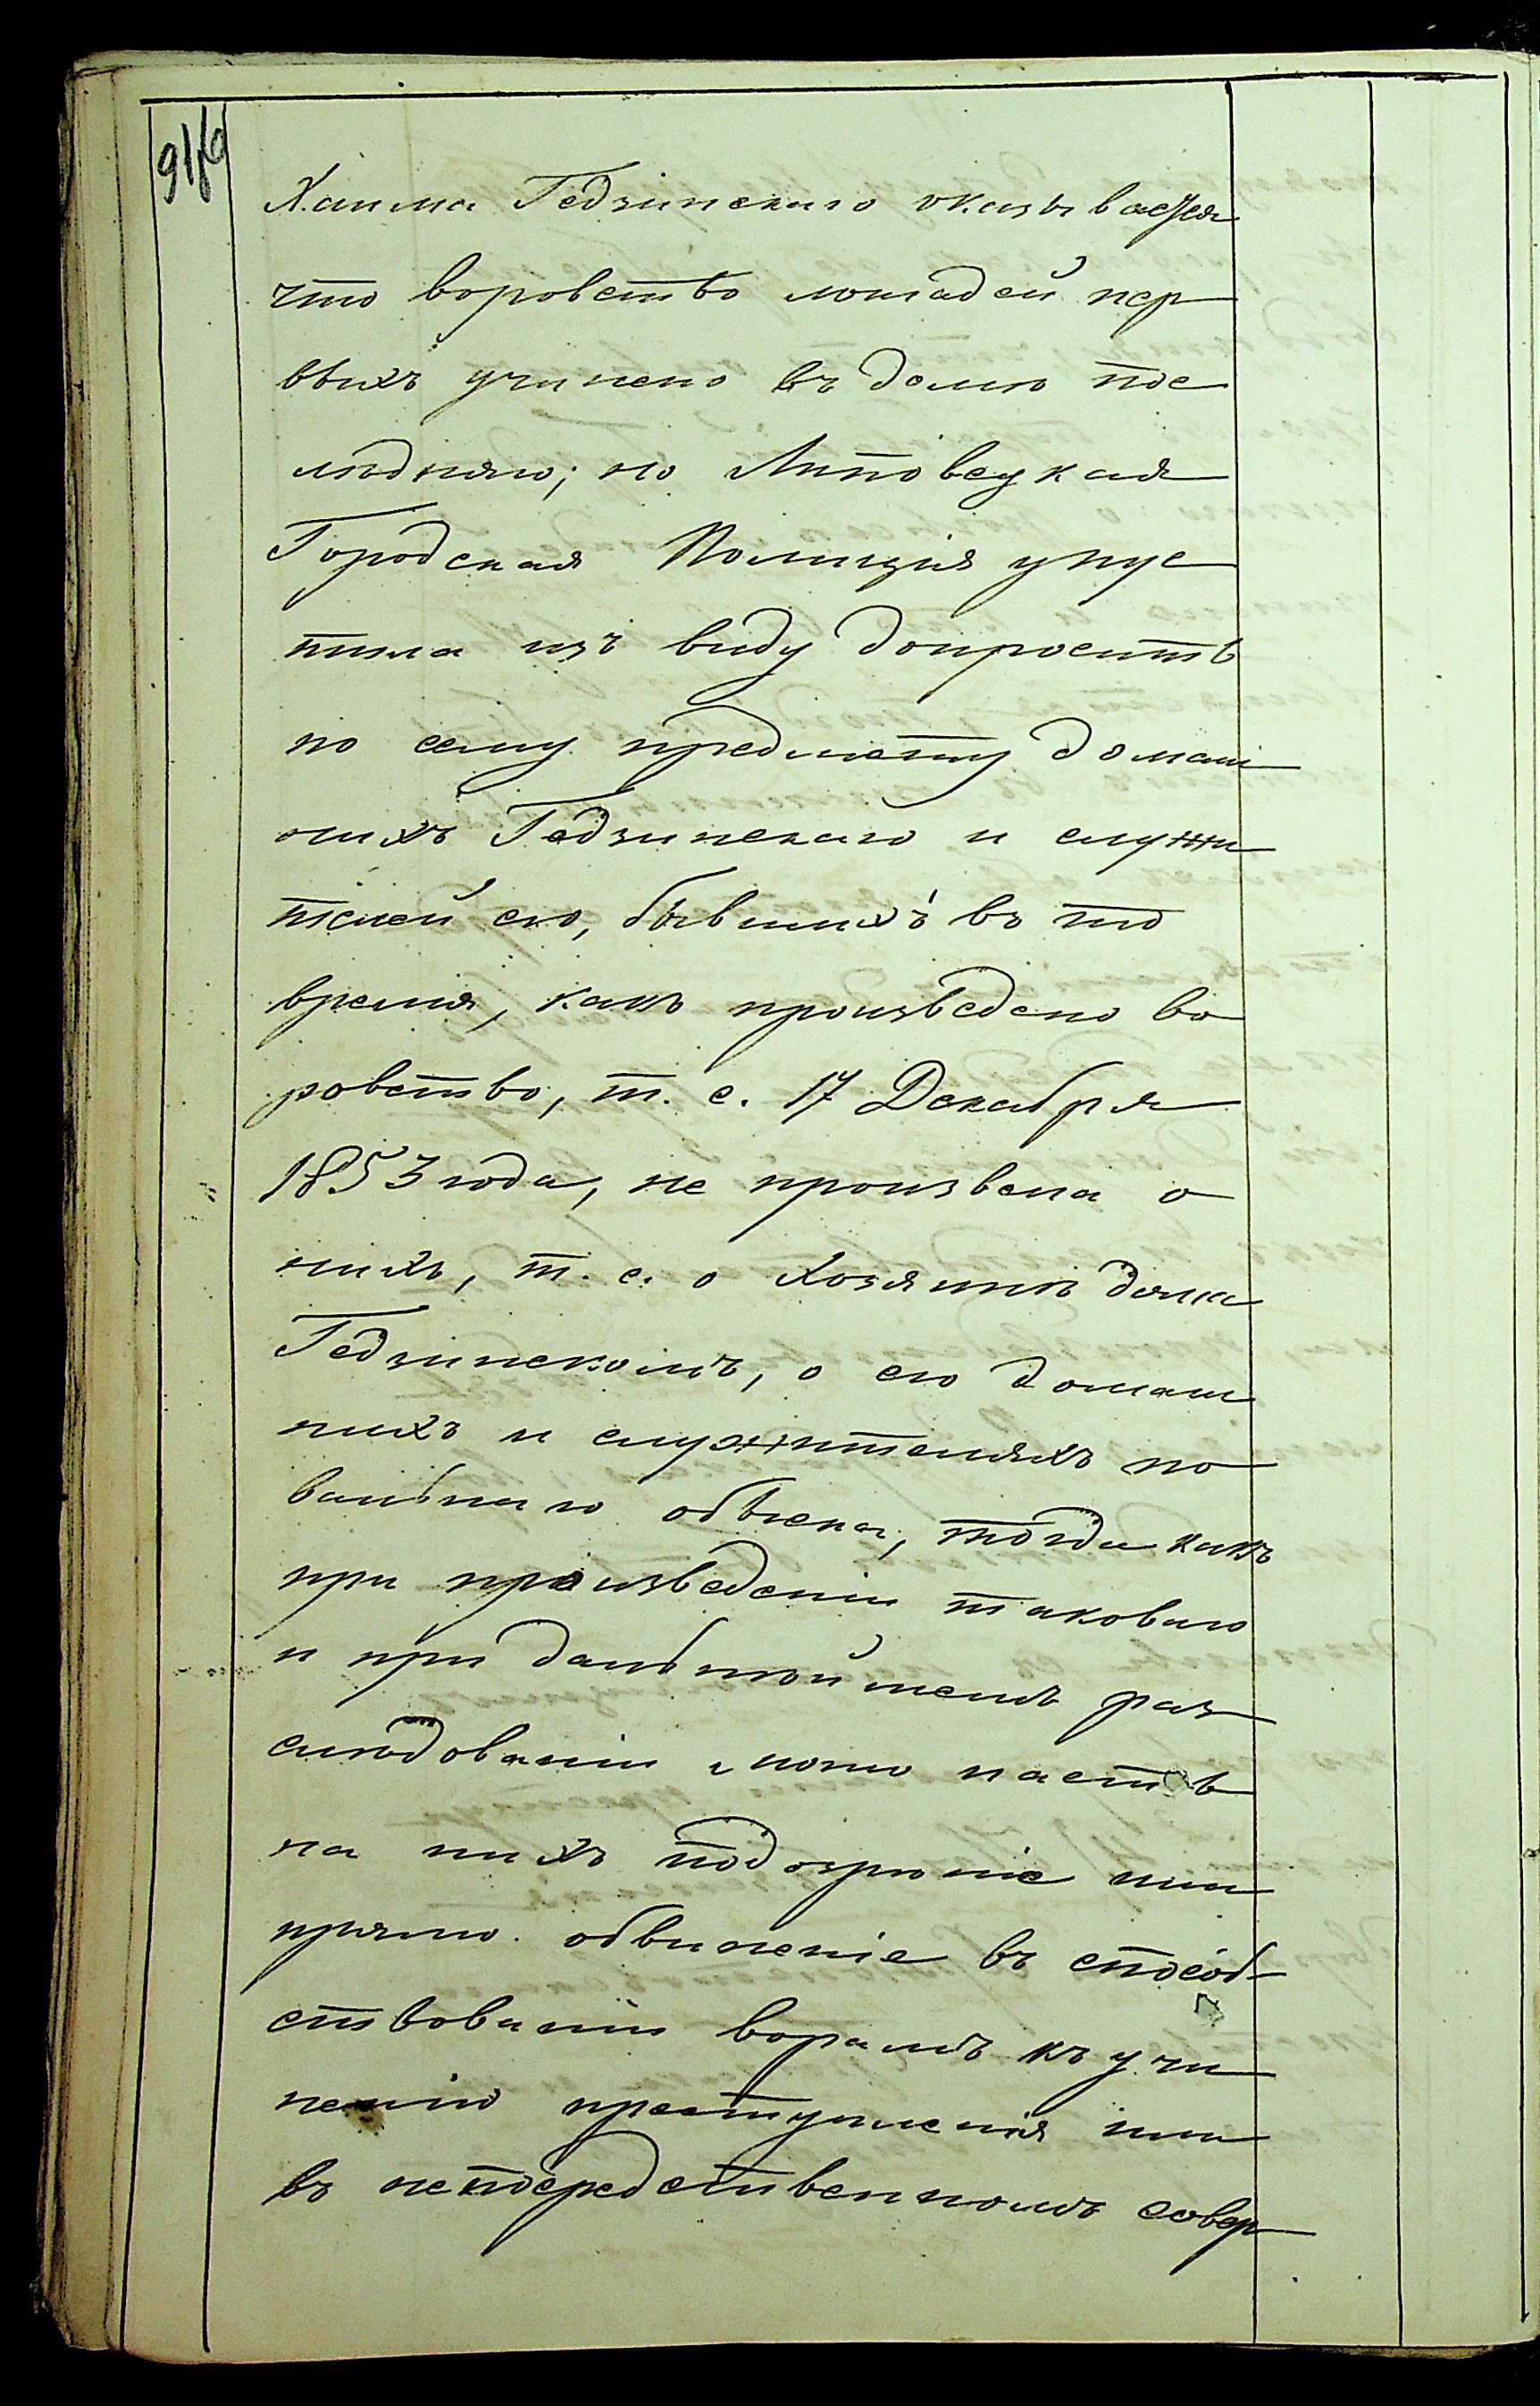 Хаима Гедзинскаго оказывается
что воровство лошадей пер
выхъ учинено въ домѣ пос
лѣдняго; но Липовецкая
Городская Полиція упус
тила изъ виду допросить
по сему предмету домаш
нихъ Гедзинскаго и служи
телей его, бывшихъ въ то
время, какъ произведено во
ровство, т. е. 17 Декабря
1853 года, не произвела о
нихъ, т. е. о хозяинѣ дома
Гедзинскомъ, о его домаш
нихъ и служителяхъ по
вальнаго обыска, тогда какъ
при произведеніи таковаго
и при дальнѣйшемъ раз
слѣдованіи могло пасть
на нихъ подозрѣніе или
прямо обвиненіе въ способ-
ствованіи ворамъ къ учи
ненію преступленія или
въ непосредственномъ совер